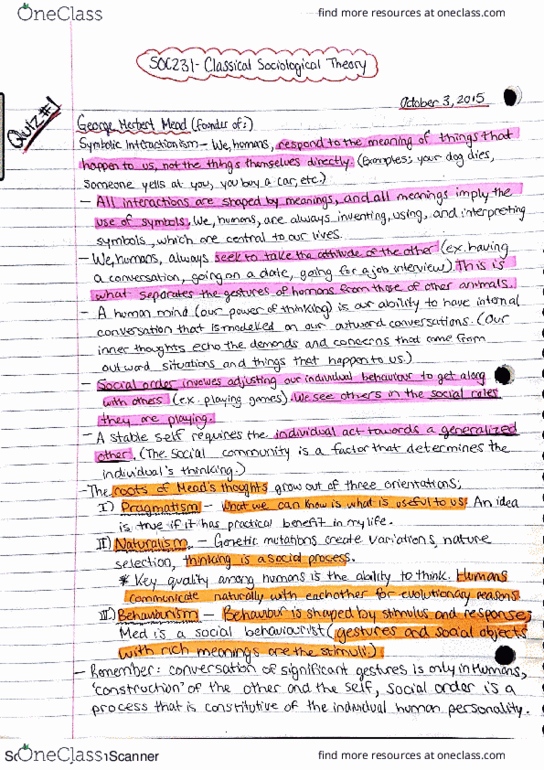 OneClass
find more resources at oneclass.com
SOC231- Classical Sociological Theory
October 3, 2015
Quiz #1
George Herbert Mead (founder of:)
Symbolic Interactionism - We, humans, respond to the meaning of things that
happen to us, not the things themselves directly. (Examples: your dog dies,
someone yells at you, you buy a car, etc.)
- All interactions are shaped by meanings, and all meanings imply the
use of symbols. We, humans, are always inventing, using, and interpreting
symbols, which are central to our lives.
- We, humans, always seek to take the attitude of the other (ex. having
a conversation, going on a date, going for a job interview). This is
what separates the gestures of humans from those of other animals.
- A human mind (our power of thinking) is our ability to have internal
conversation that is modelled on our outward conversations. (Our
inner thoughts echo the demands and concerns that come from
outward situations and things that happen to us.)
- Social order involves adjusting our individual behaviour to get along
with others (ex. playing games). We see others in the social roles
they are playing.
- A stable self requires the individual act towards a generalized
other. (The social community is a factor that determines the
individual's thinking.)
- The roots of Mead's thoughts grow out of three orientations;
I) Pragmatism - What we can know is what is useful to us. An idea
is true if it has practical benefit in my life.
II) Naturalism - Genetic mutations create variations, nature
selection, thinking is a social process.
* Key quality among humans is the ability to think. Humans
communicate naturally with eachother for evolutionary reasons.
III) Behaviourism - Behaviour is shaped by stimulus and response;
Med is a social behaviourist (gestures and social objects
with rich meanings are the stimuli.)
- Remember: conversation of significant gestures is only in Humans,
'construction' of the other and the self, social order is a
process that is constitutive of the individual human personality.
OneClass
Scanner
find more resources at oneclass.com